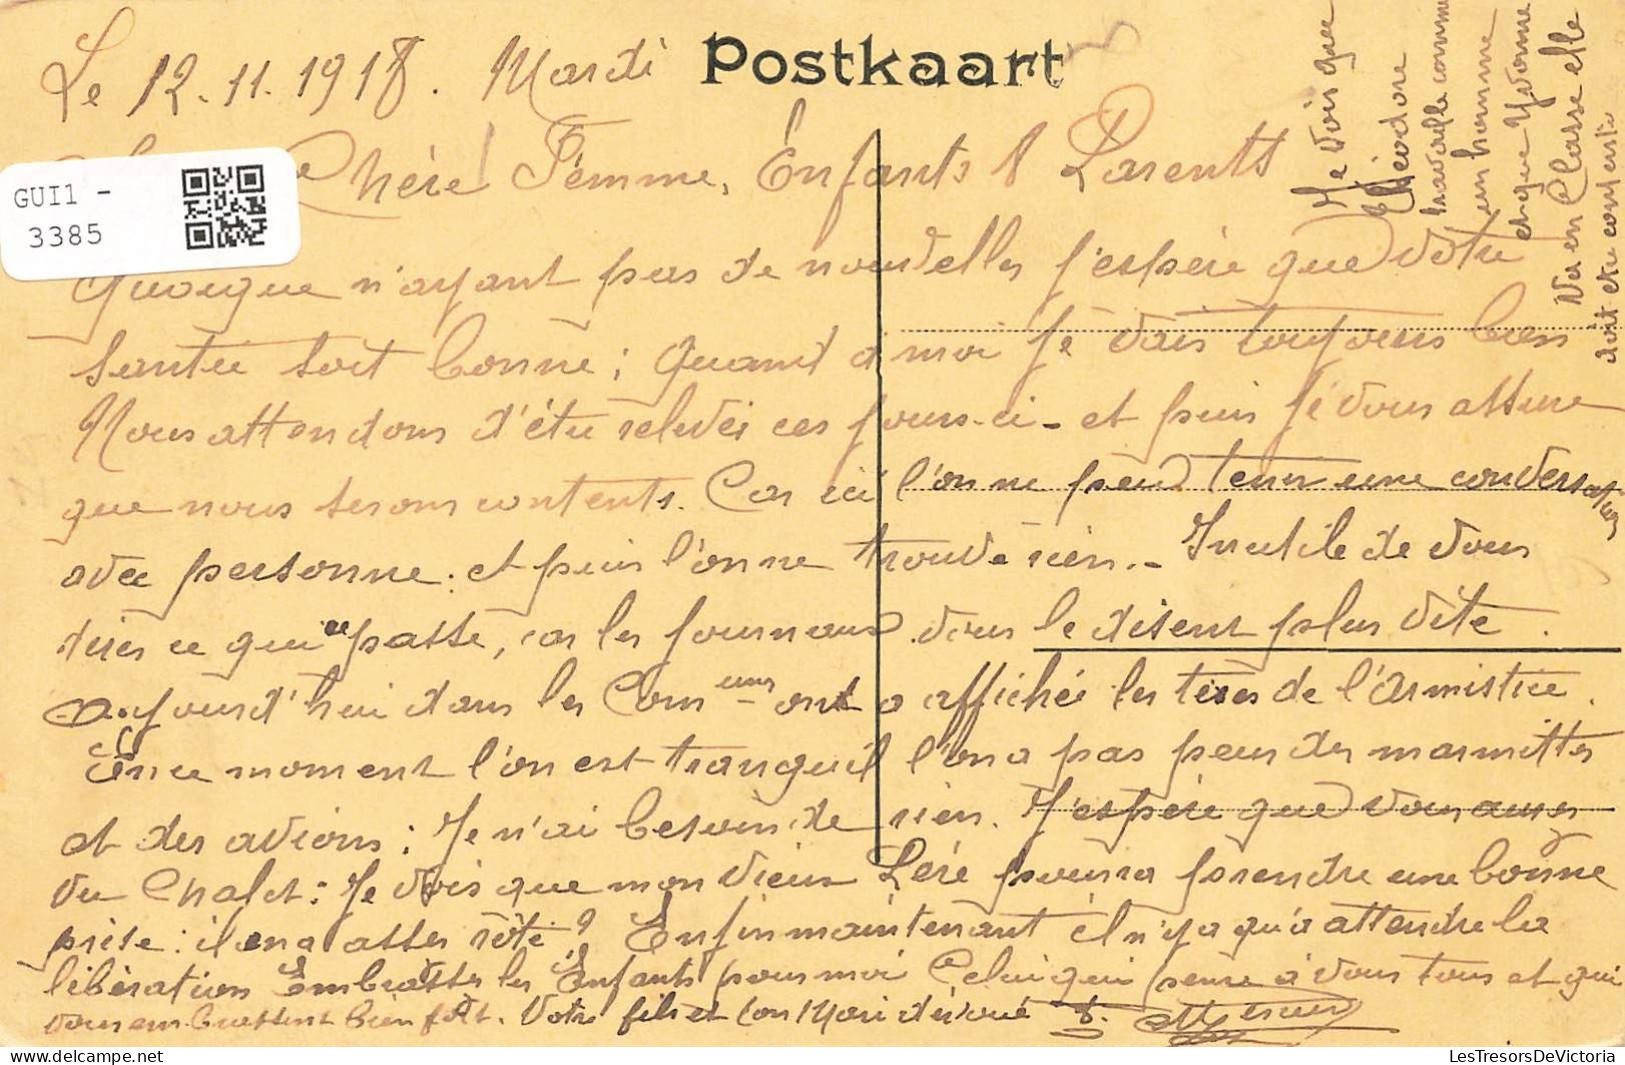 Le 12.11.1918. Mardi
Postkaart
GUI1 -
3385
Chère Femme, Enfants & Parents
Quoique n'ayant pas de nouvelles j'espère que votre
santée soit bonne; Quand a moi je vais toujours bien
Nous attendons d'étre relevés ces jours-ci - et puis je vous assure
que nous serons contents. Car ici l'on ne peut tenir une conversation
avec personne. et puis l'on ne trouve rien. - Inutile de vous
dires ce qui ce passe, car les journaux vous le disent plus vite.
aujourd'hui dans les Communs ont a affichés les tires de l'Armistice.
En ce moment l'on est tranquil l'on a pas peur des marmittes
et des avions; Je n'ai besoin de rien. J'espère que vous aurez
vu Chalet: Je vois que mon vieux Père pourra prendre une bonne
prise: il en a asser rôté? Enfin maintenant il n'y a qu'a attendre la
libèration Embrasser les Enfants pour moi Celui qui pense à vous tous et qui
vous embrassent bien fort. Votre fils et ton Mari dévoué
Je vois que
Théodore
travaille comme
un homme
et que Yvonne
Va en Classe elle
doit etre contente
LesTresorsDeVictoria